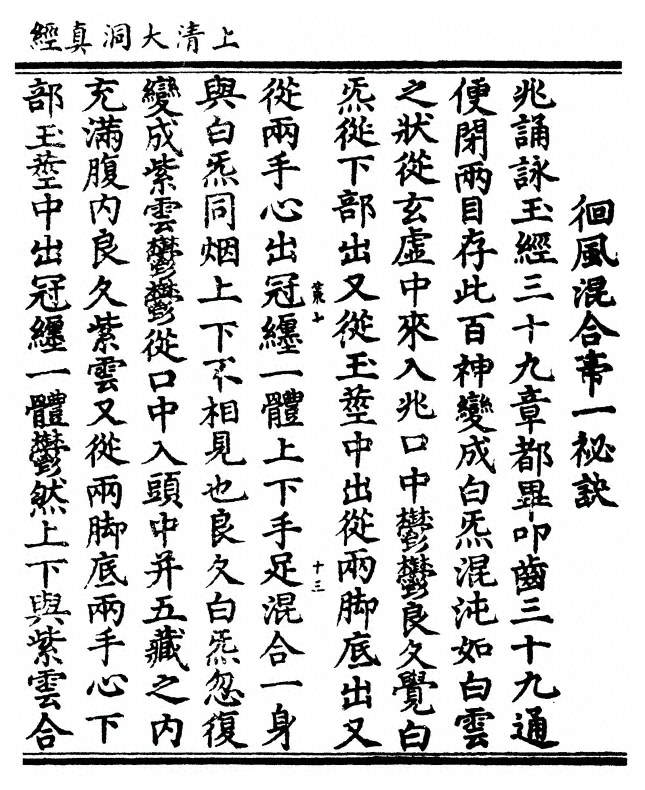 上清大洞真經
徊風混合帝一祕訣
兆誦詠玉經三十九章都畢叩齒三十九通
便閉兩目存此百神變成白炁混沌如白雲
之狀從玄虛中來入兆口中鬱鬱良久覺白
炁從下部出又從玉莖中出從兩脚底出又
七 十三
從兩手心出冠纏一體上下手足混合一身
與白炁同烟上下不相見也良久白炁忽復
變成紫雲鬱鬱從口中入頭中并五藏之內
充滿腹內良久紫雲又從兩脚底兩手心下
部玉莖中出冠纏一體鬱然上下與紫雲合